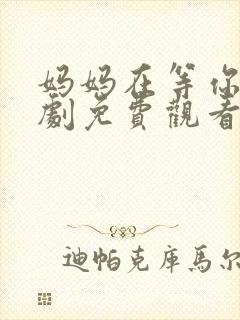 妈妈在等你
劇免費觀看
迪帕克庫馬尔